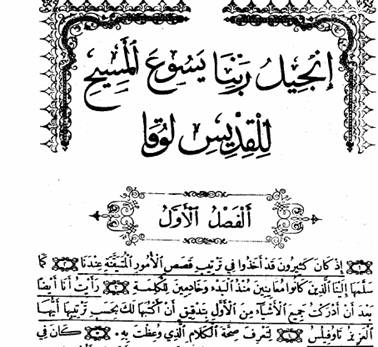 إنجيل ربنا يسوع المسيح
للقديس لوقا
ألفصل الأول
إذ كان كثيرون قد أخذوا في ترتيب قصص الأمور المتيقنة عندنا كما
سلمها إلينا الذين كانوا معاينين منذ البدء وخادمين للكلمة رأيت أنا أيضا
بعد أن أدركت جميع الأشياء من الأول بتدقيق أن أكتبها لك بحسب ترتيبها أيها
العزيز تاوفيلس لتعرف صحة الكلام الذي وعظت به. كان في